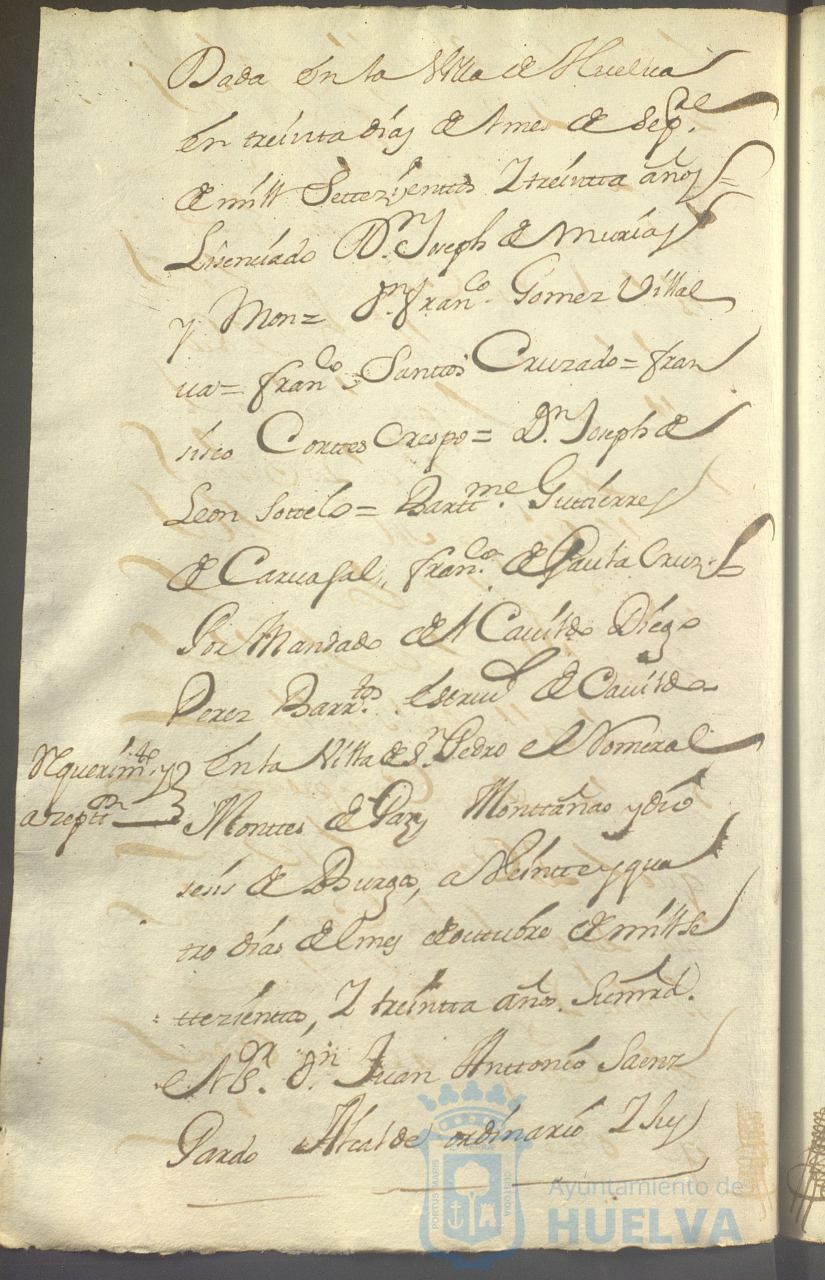 Dada en la Villa de Huelva
en treinta dias del mes de Sepre.
de mill Settezientos Y treintta años =
Lisenciado Dn. Joseph de Murias
y Mon = Dn. Franco. Gomez Villal
va = Franco. Santtos Cruzado = Fran
sisco Corttes Crespo = Dn. Joseph de
Leon Sottelo = Barttme. Gutierres
de Carvajal, Franco. de Paula Cruz =
Por Mandado del Cavildo Diego
Perez Barrtos. escrivo. de Cavildo
Requerimto. y
azeptn
en la Villa de Sn. Pedro el Romeral
Monttes de Paz Monttañas y dio
sesis de Burgos, a Veintte y qua
tro dias del mes de outubre de mill se
ttezienttos, Y treintta años. Su mrd.
el Sr. Dn. Juan Anttonio Saenz
Pardo Alcalde ordinario Y Juz
PORTUS MARIS
CUSTODIA
Ayuntamiento de
HUELVA